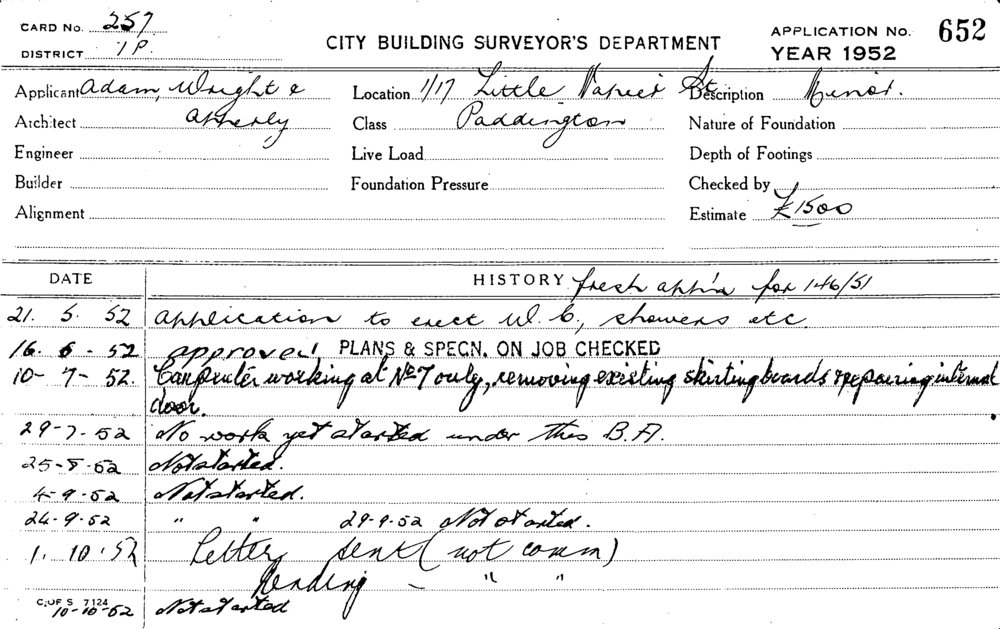 CARD No. 257
DISTRICT 1P.
CITY BUILDING SURVEYOR'S DEPARTMENT
APPLICATION No. 652
YEAR 1952
Applicant Adam, Wright & Location 1/17 Little Napier St Description Minor.
Architect Apperly Class Paddington Nature of Foundation
Engineer Live Load Depth of Footings
Builder Foundation Pressure Checked by
Alignment Estimate £1500
DATE HISTORY fresh app'n for 146/51
21. 5. 52 application to erect W.C., showers etc.
16. 6 - 52 approved PLANS & SPECN. ON JOB CHECKED
10- 7 - 52. Carpenter working at No 7 only, removing existing skirting boards & repairing internal
door.
29-7-52 No work yet started under this B.A.
25-8-52 Not started.
4-9-52 Not started.
24-9-52 " " 29-9-52 Not started.
1. 10. 52 Letter sent (not comm)
Pending - " "
C. OF S. 7124
10-10-52 Not started